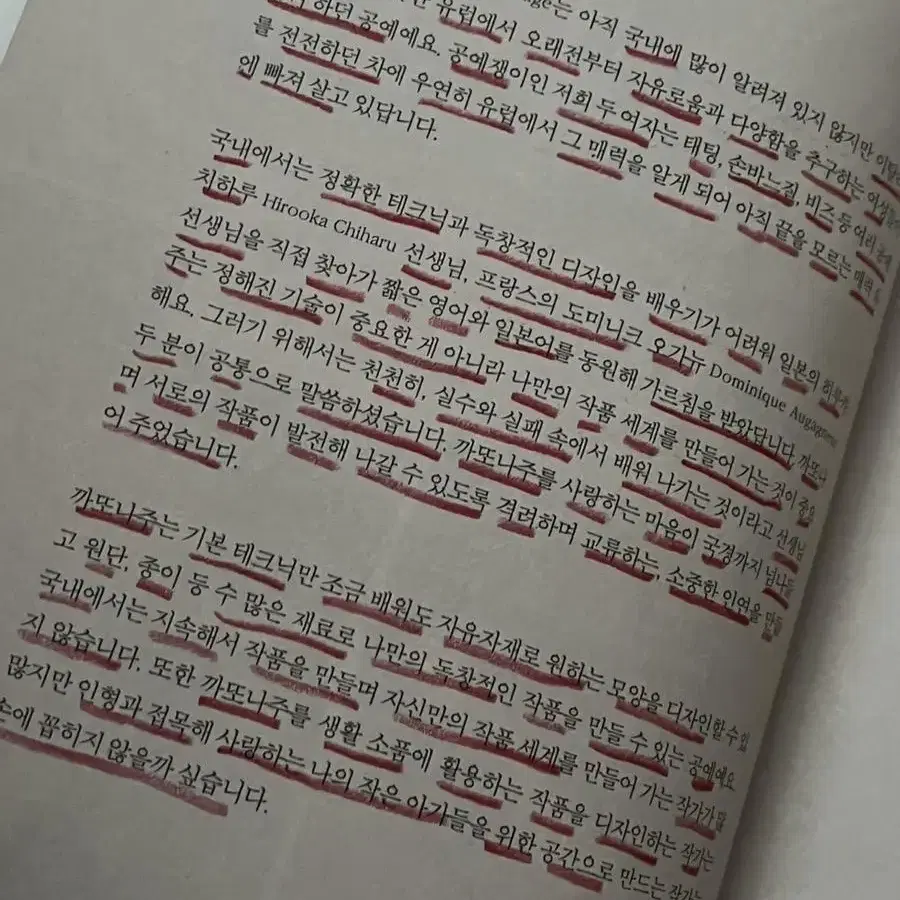 nage는 아직 국내에 많이 알려져 있지 않지만 이탈
유럽에서 오래전부터 자유로움과 다양함을 추구하는 여성
하던 공예예요. 공예쟁이인 저희 두 여자는 태팅, 손바느질, 비즈 등 여러 공예
를 전전하던 차에 우연히 유럽에서 그 매력을 알게 되어 아직 끝을 모르는 매력 속
엔 빠져 살고 있답니다.
국내에서는 정확한 테크닉과 독창적인 디자인을 배우기가 어려워 일본의 히루카
치하루 Hirooka Chiharu 선생님, 프랑스의 도미니크 오가뉴 Dominique Augagneur
선생님을 직접 찾아가 짧은 영어와 일본어를 동원해 가르침을 받았답니다. 까또나
주는 정해진 기술이 중요한 게 아니라 나만의 작품 세계를 만들어 가는 것이 중요
해요. 그러기 위해서는 천천히, 실수와 실패 속에서 배워 나가는 것이라고 선생님
두 분이 공통으로 말씀하셨습니다. 까또나주를 사랑하는 마음이 국경까지 넘나들
며 서로의 작품이 발전해 나갈 수 있도록 격려하며 교류하는, 소중한 인연을 만들
어 주었습니다.
까또나주는 기본 테크닉만 조금 배워도 자유자재로 원하는 모양을 디자인할 수 있
고 원단, 종이 등 수 많은 재료로 나만의 독창적인 작품을 만들 수 있는 공예예요.
국내에서는 지속해서 작품을 만들며 자신만의 작품 세계를 만들어 가는 작가가 많
지 않습니다. 또한 까또나주를 생활 소품에 활용하는 작품을 디자인하는 작가는
많지만 인형과 접목해 사랑하는 나의 작은 아가들을 위한 공간으로 만드는 작가는
손에 꼽히지 않을까 싶습니다.